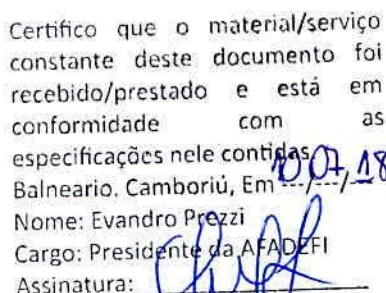 Certifico que o material/serviço
constante deste documento foi
recebido/prestado e está em
conformidade com as
especificações nele contidas
Balneario. Camboriú, Em 10/07/18
Nome: Evandro Prezzi
Cargo: Presidente da AFADEFI
Assinatura: